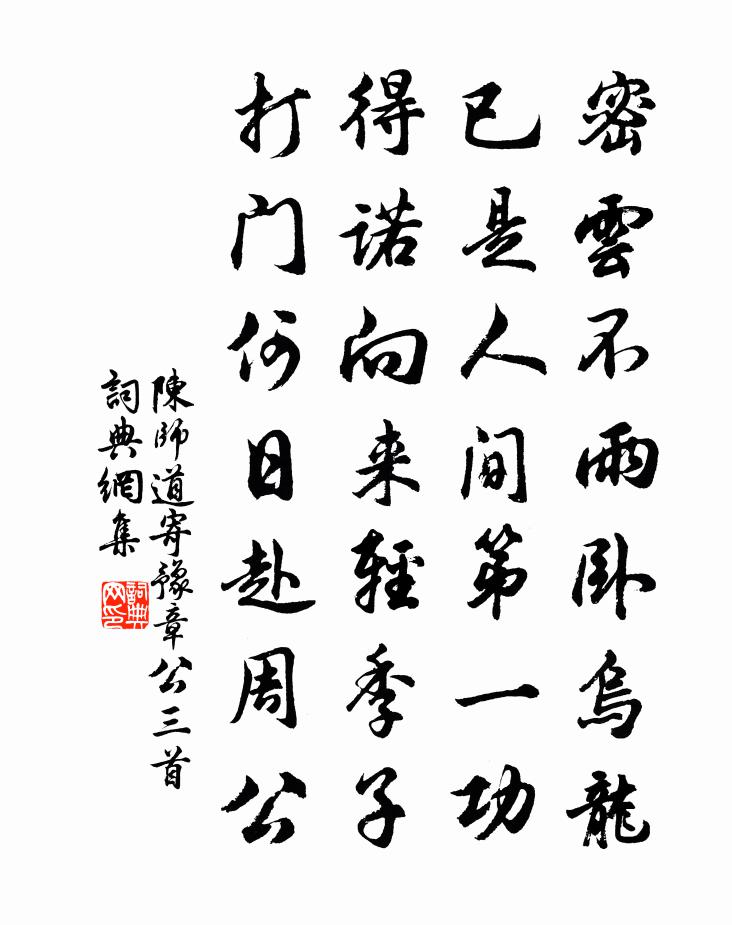 密雲不雨卧烏龍
已是人间第一功
得诺向来輕季子
打门何日赴周公
陳師道寄豫章公三首
詞典網集
詞典网印